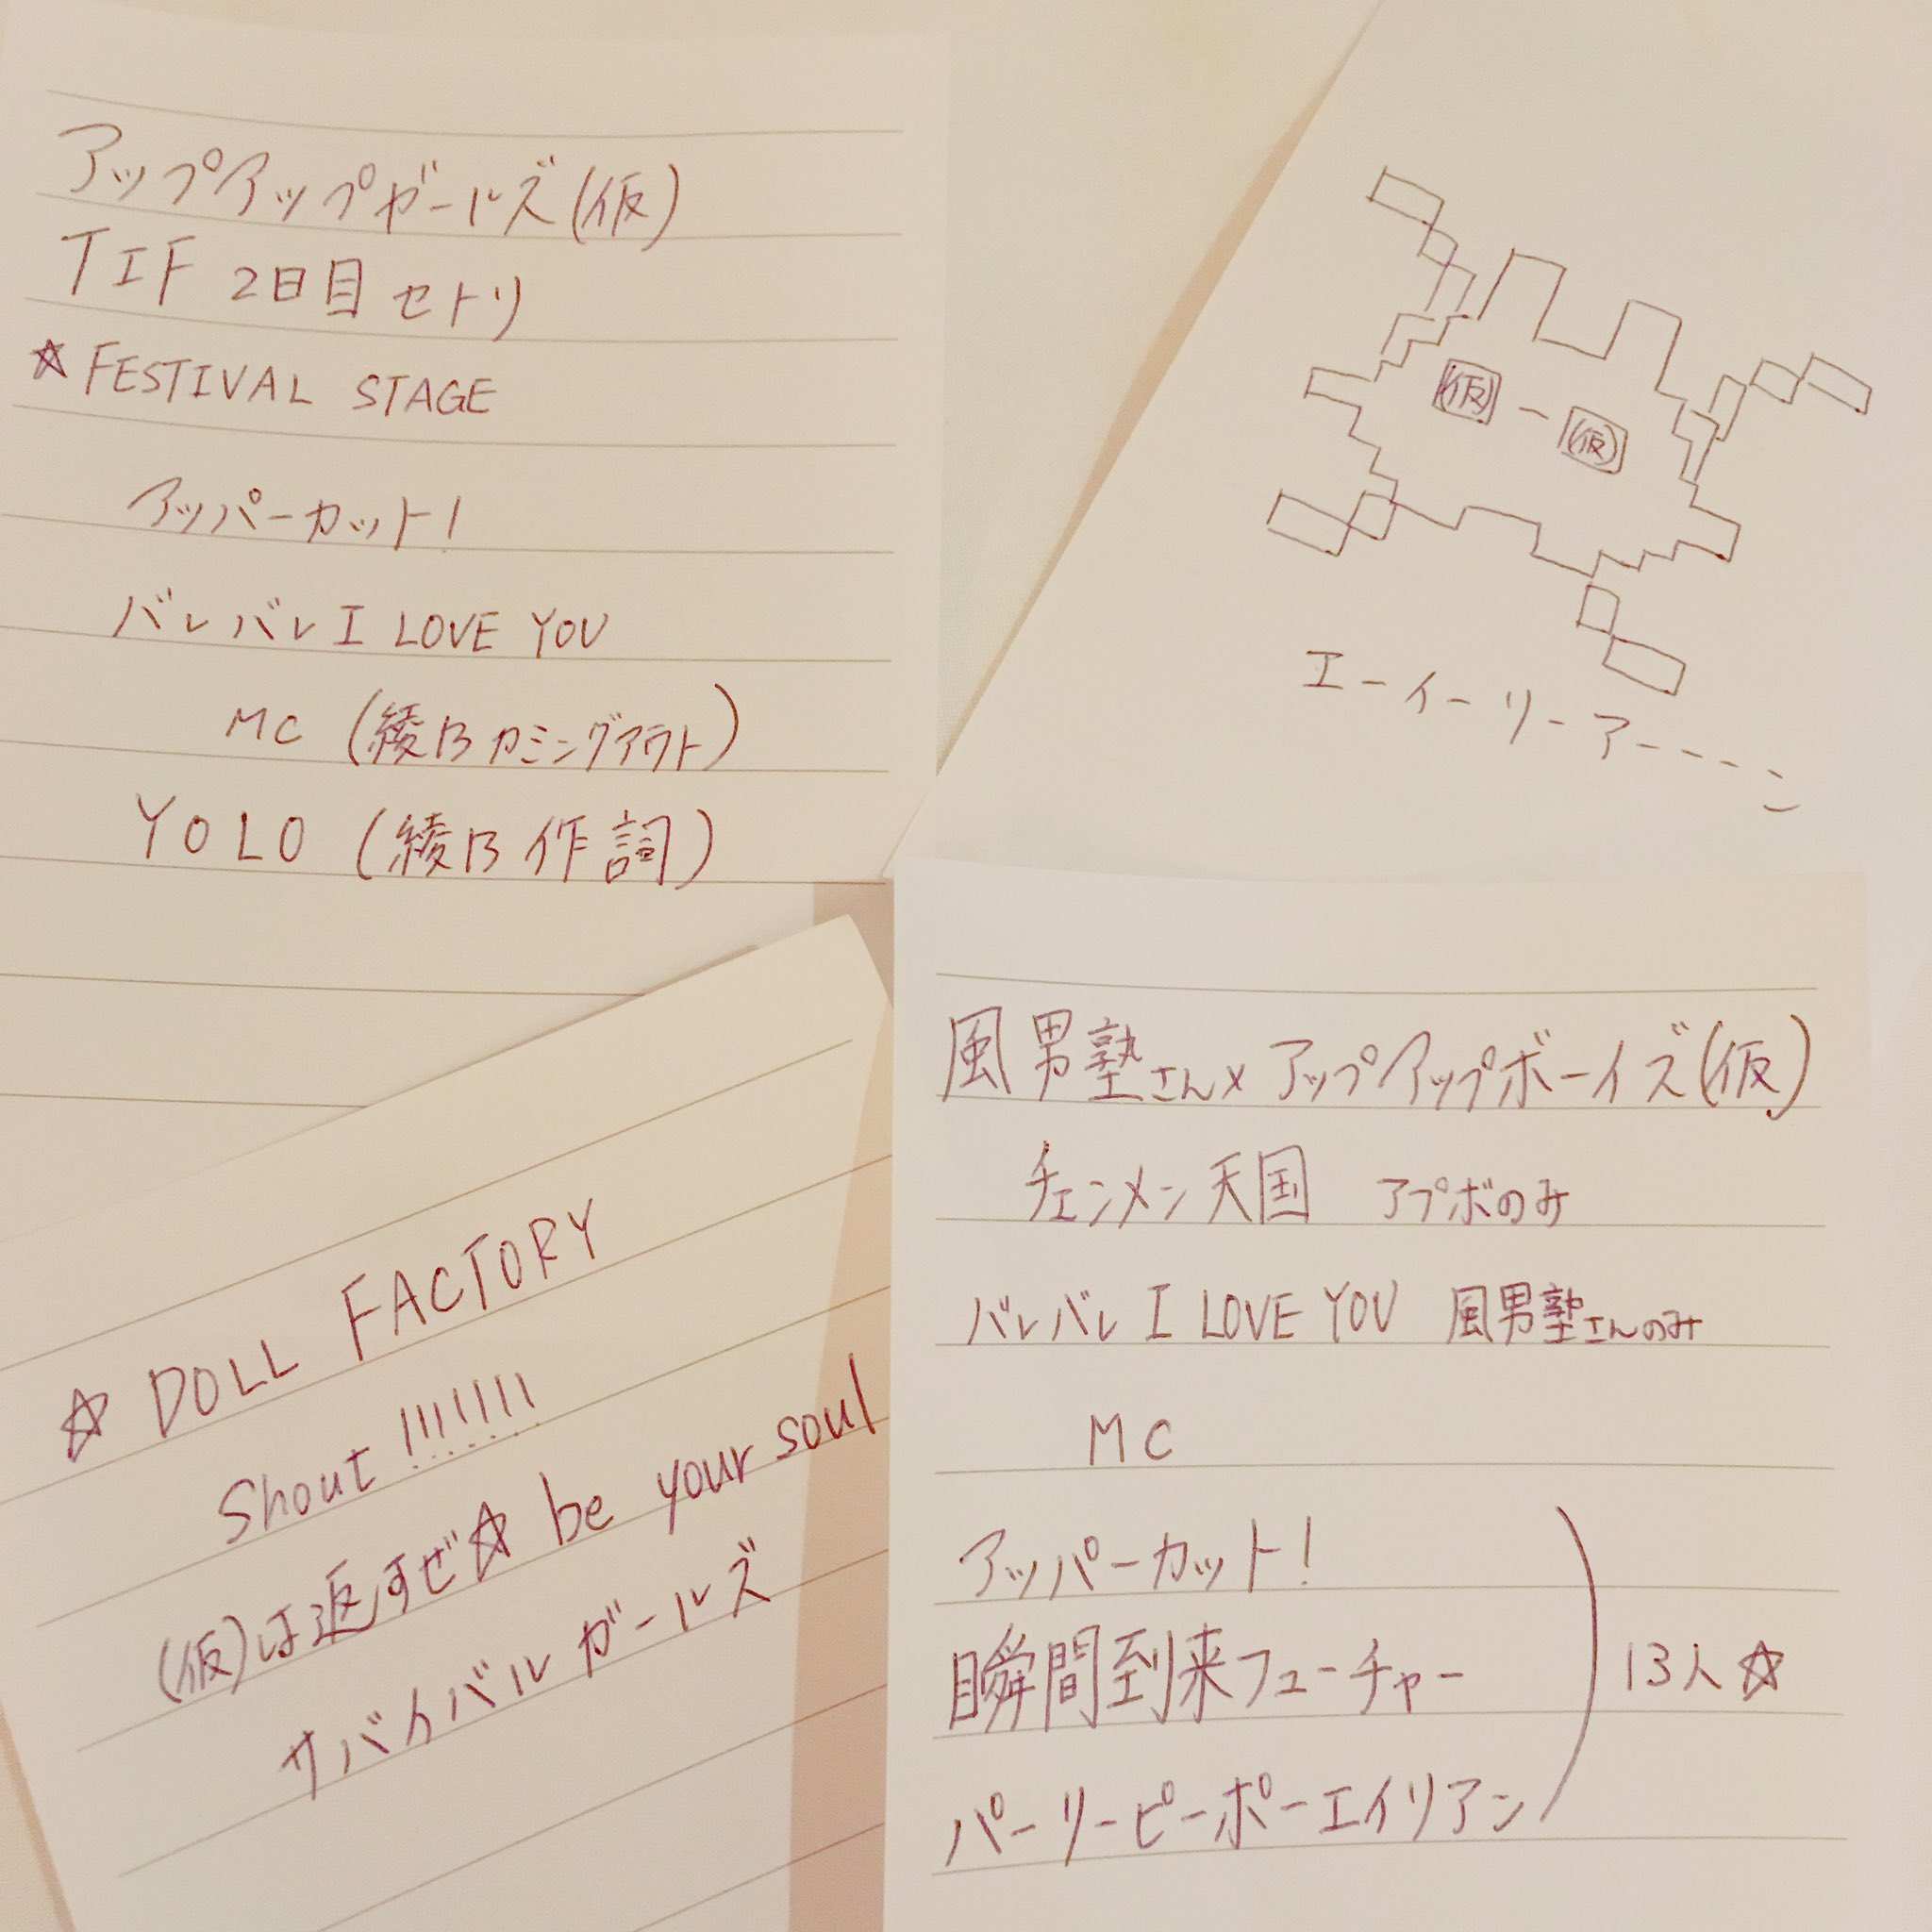 アップアップガールズ(仮)
TIF 2日目 セトリ
☆ FESTIVAL STAGE
アッパーカット!
バレバレ I LOVE YOU
MC (綾Bカミングアウト)
YOLO (綾B 作詞)
(仮) - (仮)
エーイーリーアーーーーン
☆ DOLL FACTORY
Shout!!!!!!!
(仮)は返すぜ☆ be your soul
サバイバルガールズ
風男塾さん×アップアップボーイズ(仮)
チェンメン天国 アプボのみ
バレバレ I LOVE YOU 風男塾さんのみ
MC
アッパーカット!
瞬間到来フューチャー
13人☆
パーリーピーポーエイリアン